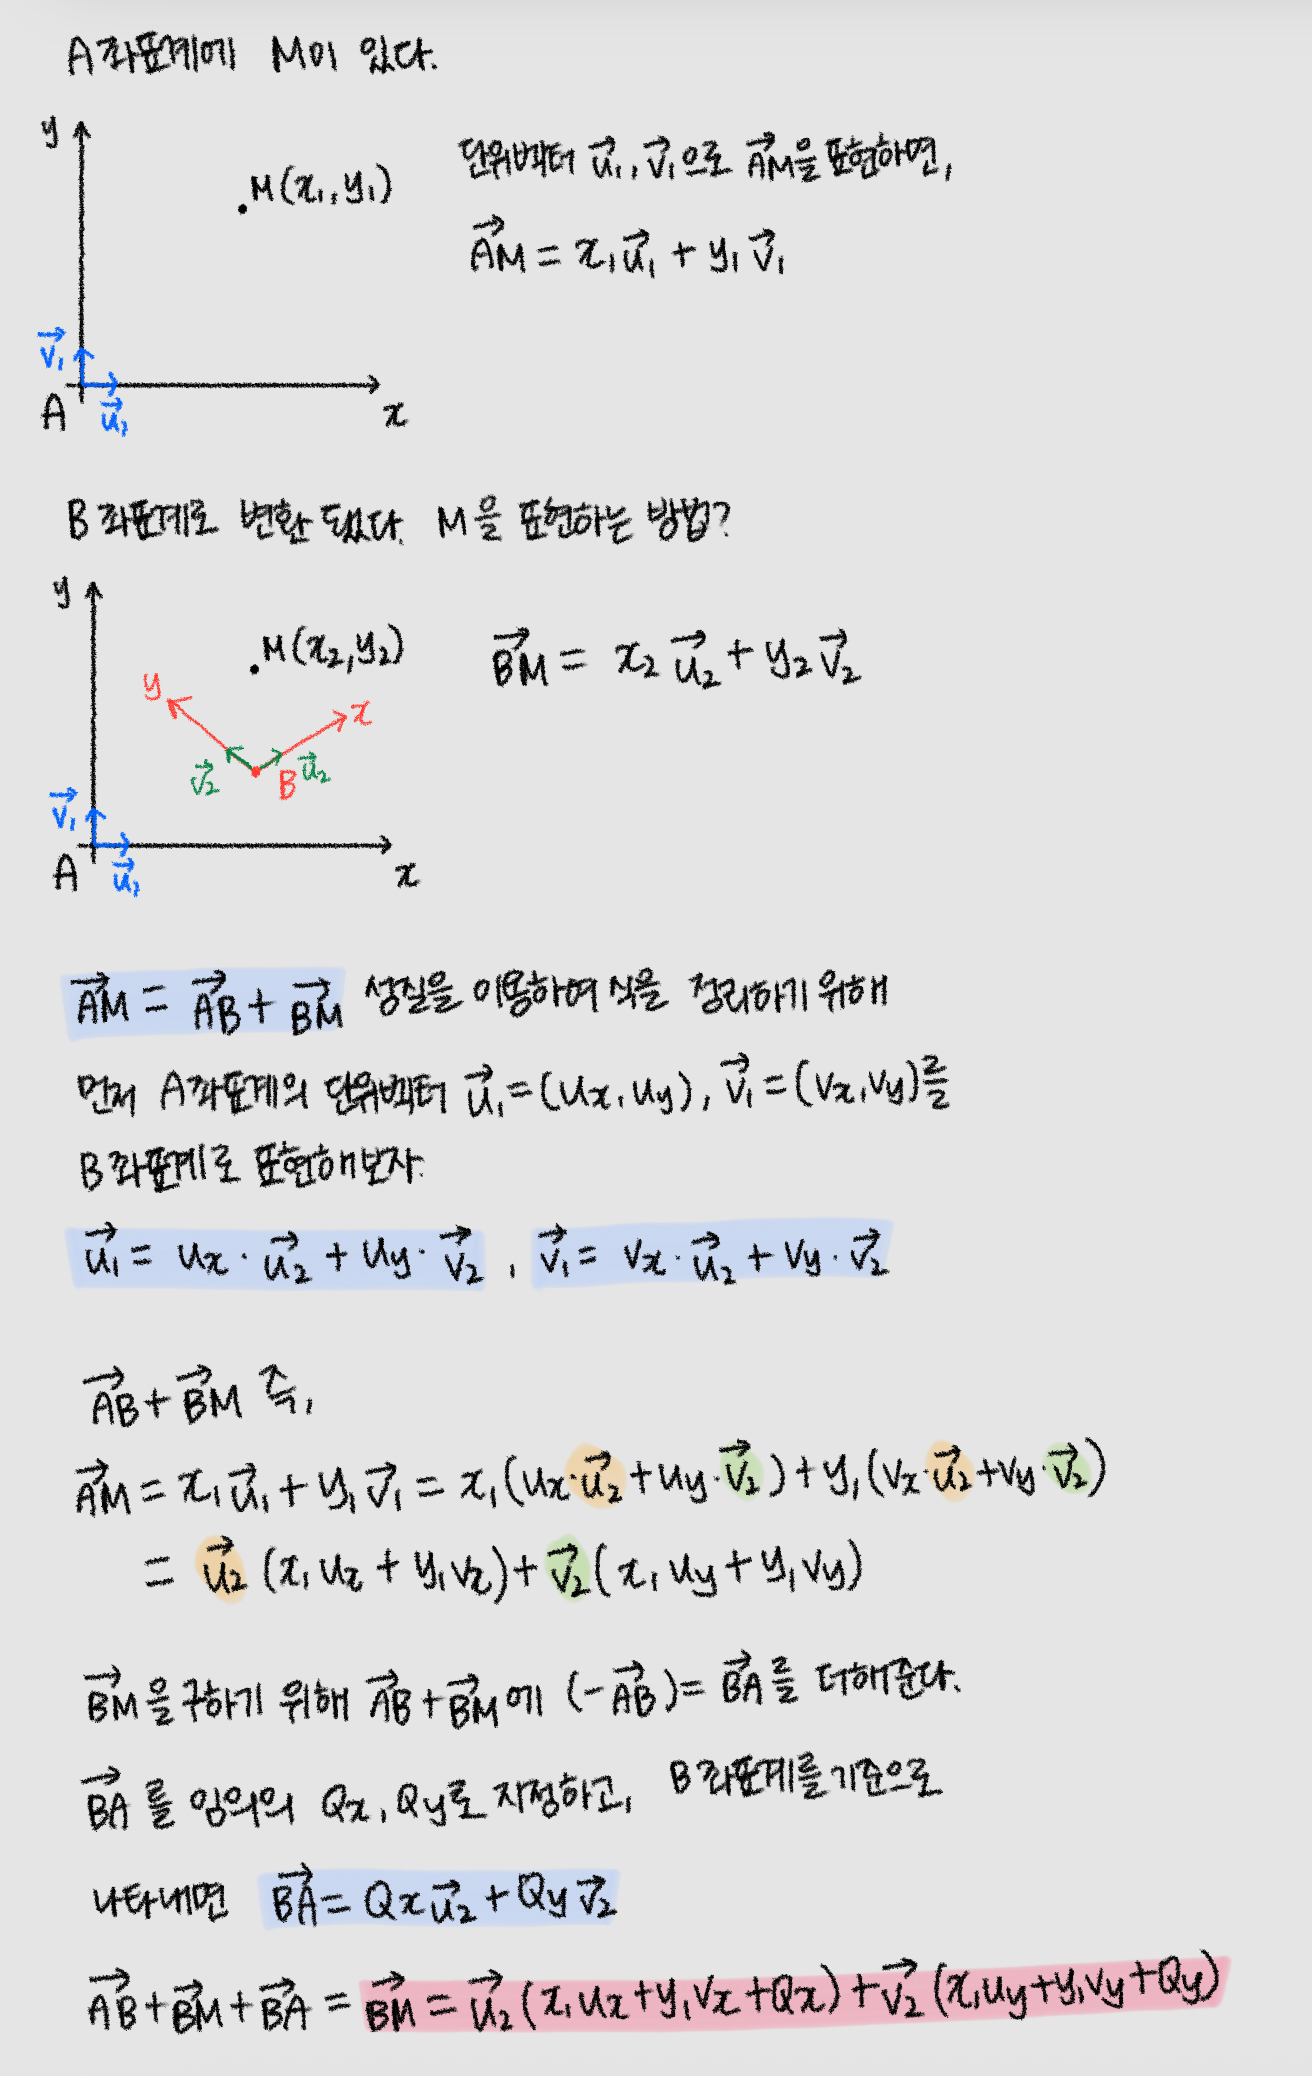 A좌표계에 M이 있다.
y
M(x₁, y₁)
단위벡터 u⃗₁, v⃗₁으로 A⃗M을 표현하면,
A⃗M = x₁u⃗₁ + y₁v⃗₁
v⃗₁
A
u⃗₁
x
B좌표계로 변환 됐다. M을 표현하는 방법?
y
M(x₂, y₂)
B⃗M = x₂u⃗₂ + y₂v⃗₂
y
x
v⃗₂
B
u⃗₂
v⃗₁
A
u⃗₁
x
A⃗M = A⃗B + B⃗M 성질을 이용하여 식을 정리하기 위해
먼저 A좌표계의 단위벡터 u⃗₁ = (ux, uy), v⃗₁ = (vx, vy)를
B좌표계로 표현해보자.
u⃗₁ = ux · u⃗₂ + uy · v⃗₂ , v⃗₁ = vx · u⃗₂ + vy · v⃗₂
A⃗B + B⃗M 즉,
A⃗M = x₁u⃗₁ + y₁v⃗₁ = x₁(ux·u⃗₂ + uy·v⃗₂) + y₁(vx·u⃗₂ + vy·v⃗₂)
= u⃗₂ (x₁ux + y₁vx) + v⃗₂ (x₁uy + y₁vy)
B⃗M을 구하기 위해 A⃗B + B⃗M에 (-A⃗B) = B⃗A를 더해준다.
B⃗A를 임의의 Qx, Qy로 지정하고, B좌표계를 기준으로
나타내면 B⃗A = Qxu⃗₂ + Qyv⃗₂
A⃗B + B⃗M + B⃗A = B⃗M = u⃗₂ (x₁ux + y₁vx + Qx) + v⃗₂ (x₁uy + y₁vy + Qy)